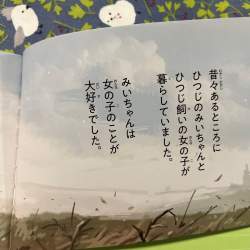 昔々あるところに
ひつじのみいちゃんと
ひつじ飼いの女の子が
暮らしていました。
みいちゃんは
女の子のことが
大好きでした。